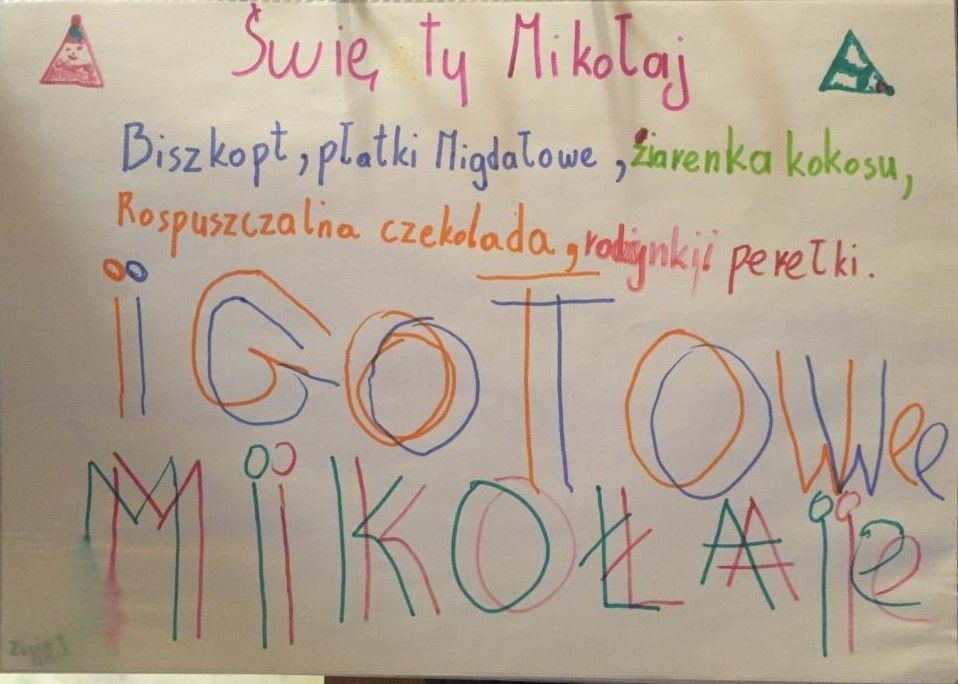 Świę ty Mikołaj
Biszkopt, płatki Migdałowe, ziarenka kokosu,
Rospuszczalna czekolada, rodzynki i perełki.
i GOTOWe
MiKOŁAje